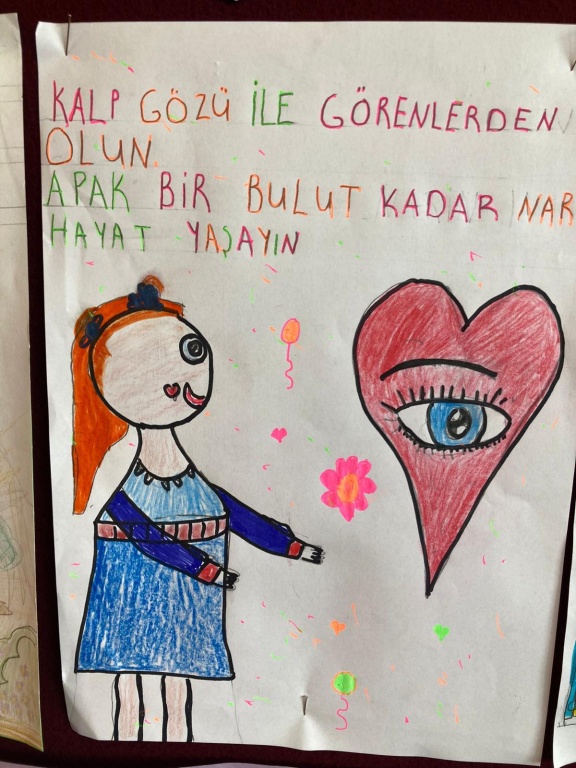 KALP GÖZÜ İLE GÖRENLERDEN
OLUN
APAK BİR BULUT KADAR
HAYAT YAŞAYIN